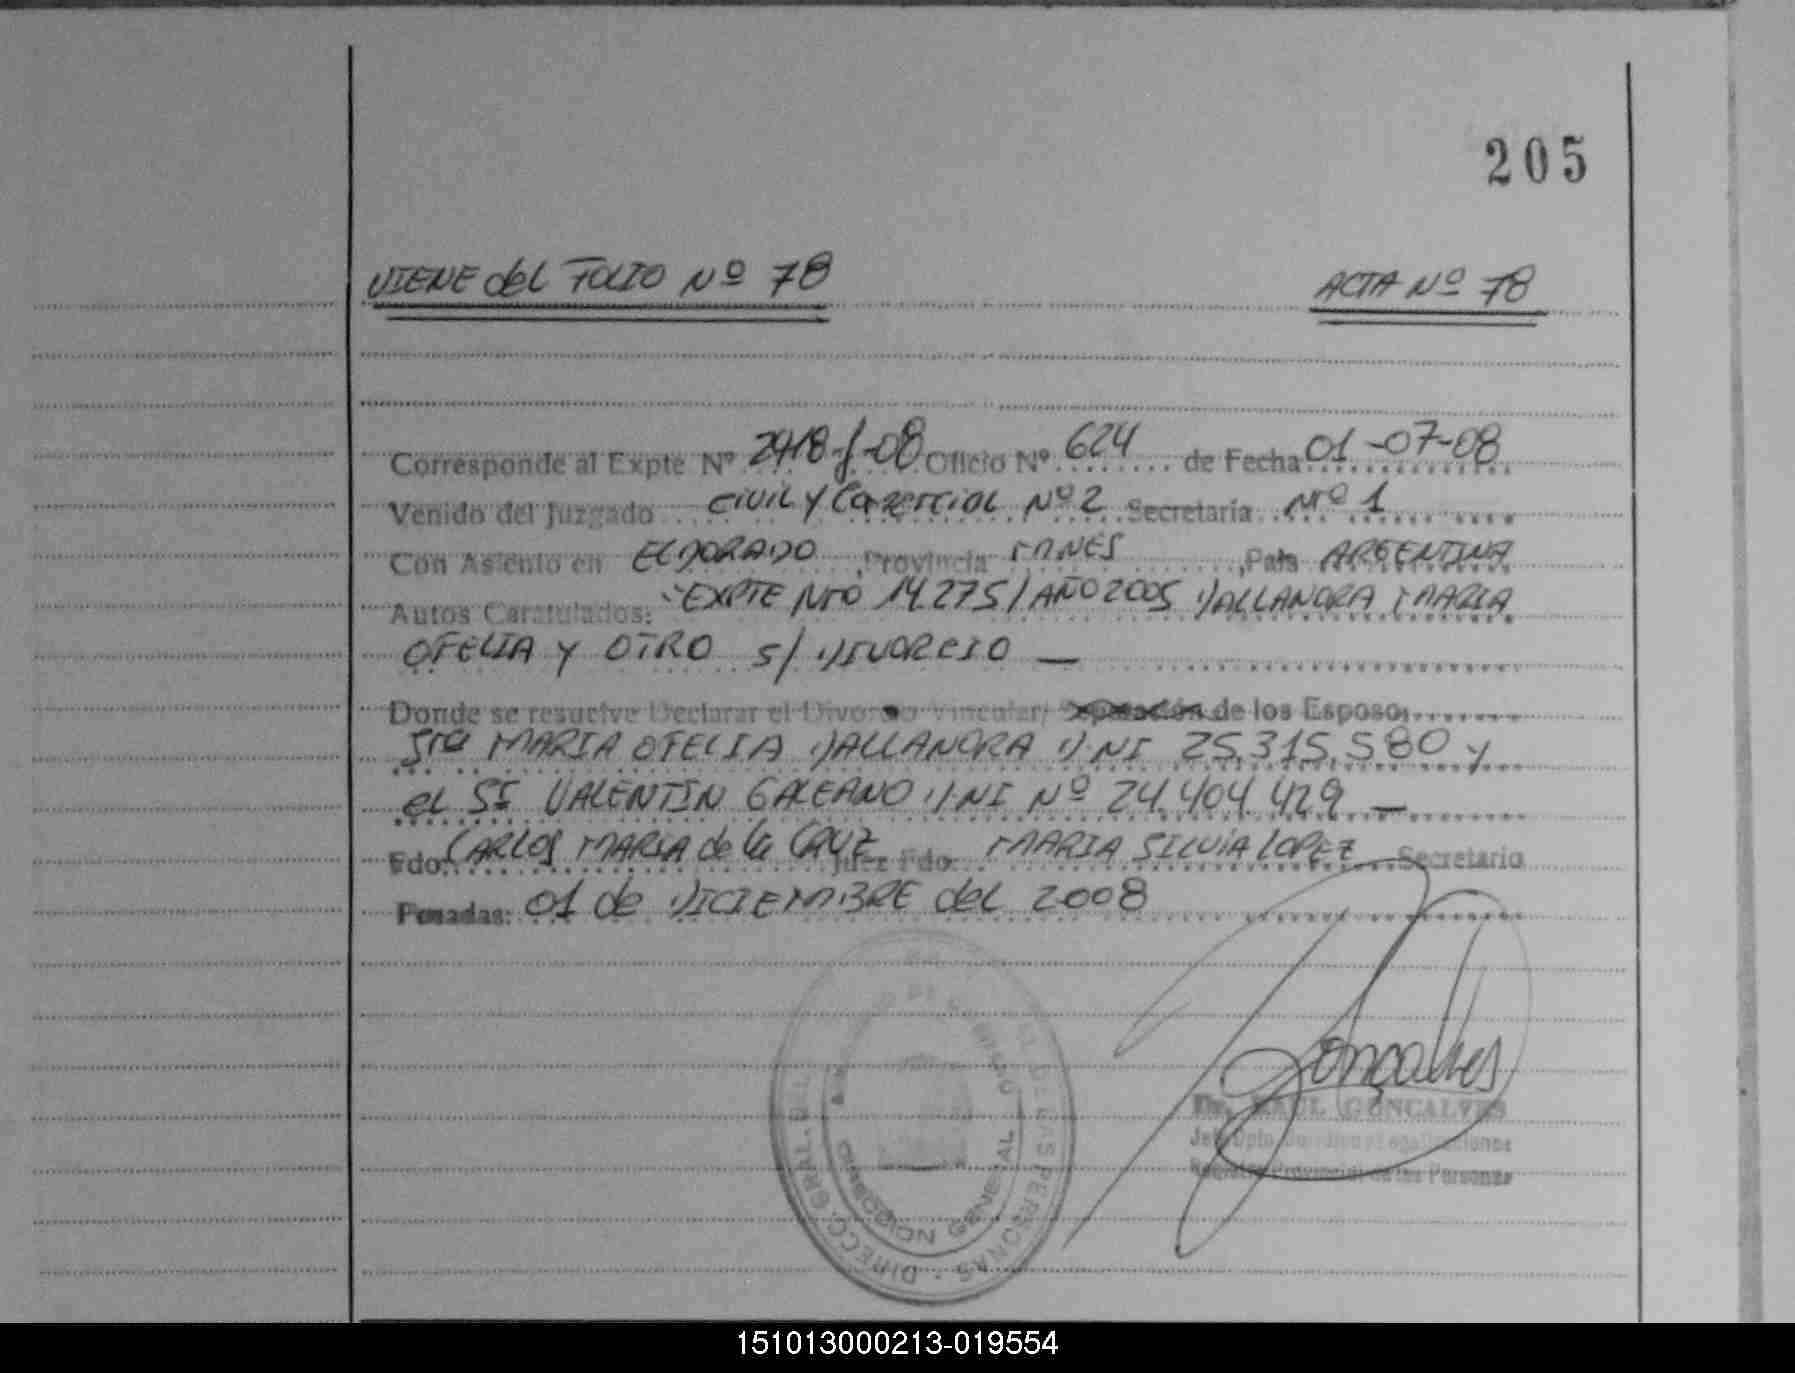 205
VIENE del FOLIO Nº 78 ACTA Nº 78
Corresponde al Expte Nº 2418-J-08 Oficio Nº 624 de Fecha 01-07-08
Venido del Juzgado Civil y Comercial Nº 2 Secretaria Nº 1
Con Asiento en ELDORADO, Provincia MNES, Pais ARGENTINA
Autos Caratulados: "EXPTE Nro 14.275/AÑO 2005 DALLANORA MARIA
OFELIA Y OTRO S/ DIVORCIO —
Donde se resuelve Declarar el Divorcio Vincular/ Separación de los Esposo,
Sra MARIA OFELIA DALLANORA DNI 25.315.580 y
el Sr VALENTIN GALEANO DNI Nº 24.404.429 —
Fdo: CARLOS MARIA de la CRUZ Juez Fdo. MARIA SILVIA LOPEZ Secretario
Posadas: 01 de DICIEMBRE del 2008
Gonçalves
Dr. RAUL GONCALVES
Registro Provincial de las Personas
DIRECC. GRAL. DEL DE LAS PERSONAS
DIRECCION GENERAL
151013000213-019554